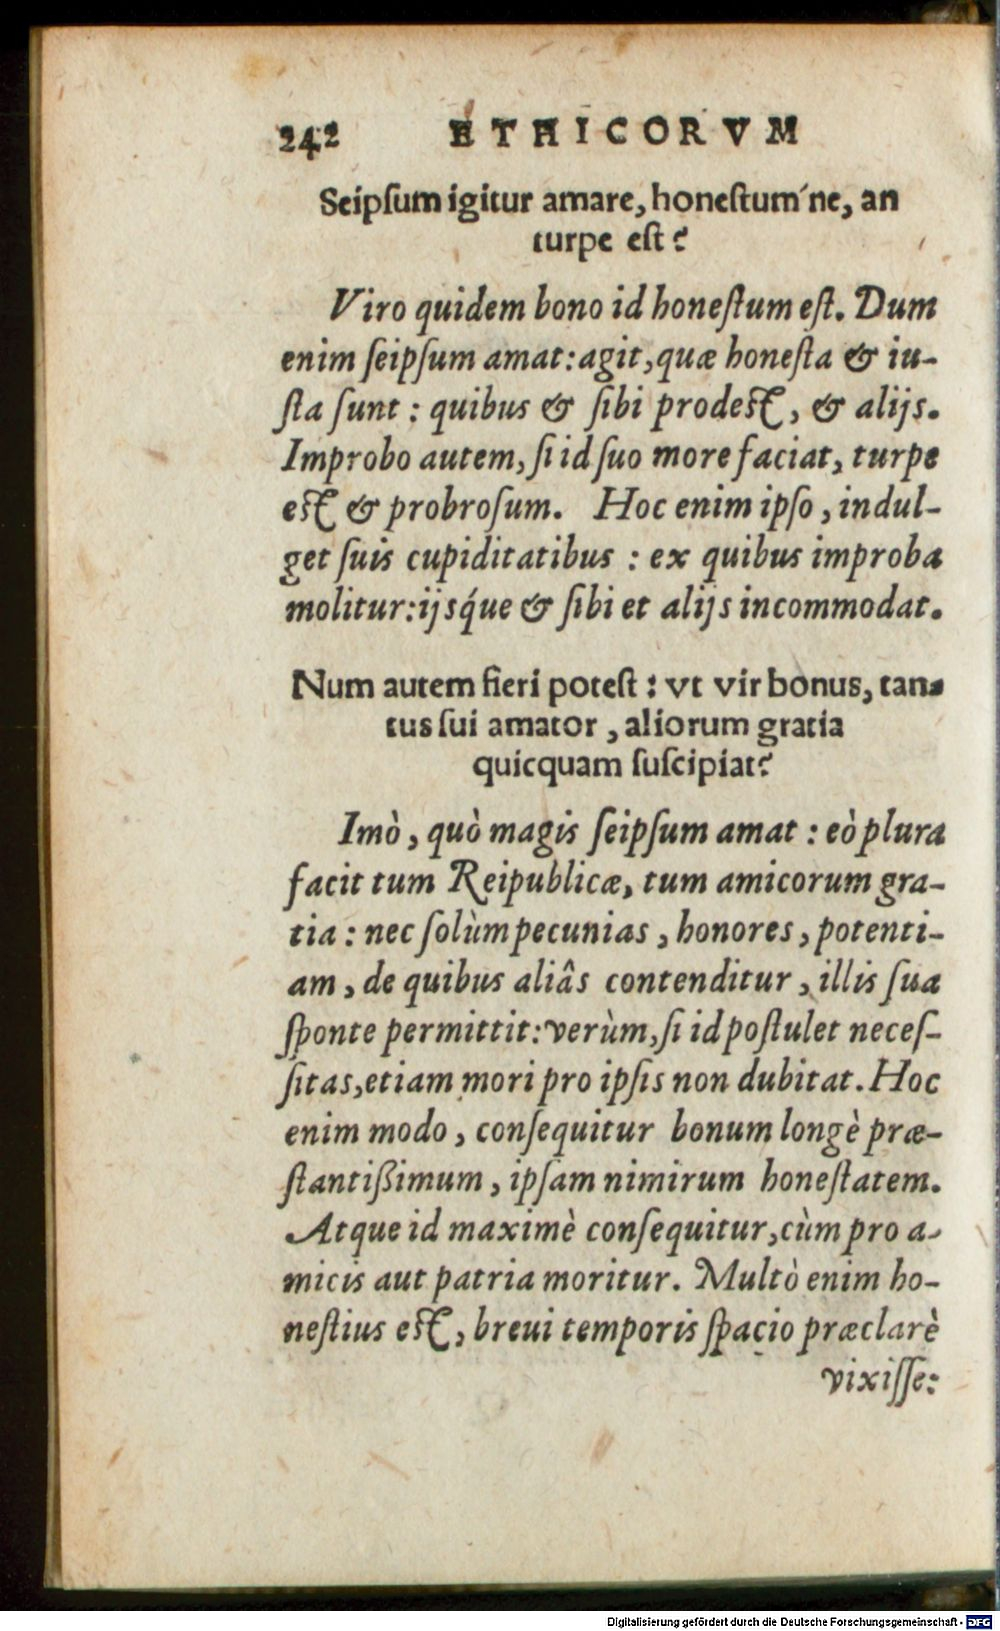 242 ETHICORVM
Seipſum igitur amare, honeſtum´ne, an
turpe eſt?
Viro quidem bono id honeſtum eſt. Dum
enim ſeipſum amat: agit, quæ honeſta & iu-
ſta ſunt: quibus & ſibi prodeſt, & alijs.
Improbo autem, ſi id ſuo more faciat, turpe
eſt & probroſum. Hoc enim ipſo, indul-
get ſuis cupiditatibus: ex quibus improba
molitur: ijsq́ue & ſibi et alijs incommodat.
Num autem fieri poteſt: vt vir bonus, tan-
tus ſui amator, aliorum gratia
quicquam ſuſcipiat?
Imò, quò magis ſeipſum amat: eò plura
facit tum Reipublicæ, tum amicorum gra-
tia: nec ſolùm pecunias, honores, potenti-
am, de quibus aliâs contenditur, illis ſua
ſponte permittit: verùm, ſi id poſtulet neceſ-
ſitas, etiam mori pro ipſis non dubitat. Hoc
enim modo, conſequitur bonum longè præ-
ſtantißimum, ipſam nimirum honeſtatem.
Atque id maximè conſequitur, cùm pro a-
micis aut patria moritur. Multò enim ho-
neſtius eſt, breui temporis ſpacio præclarè
vixiſſe:
Digitalisierung gefördert durch die Deutsche Forschungsgemeinschaft - DFG